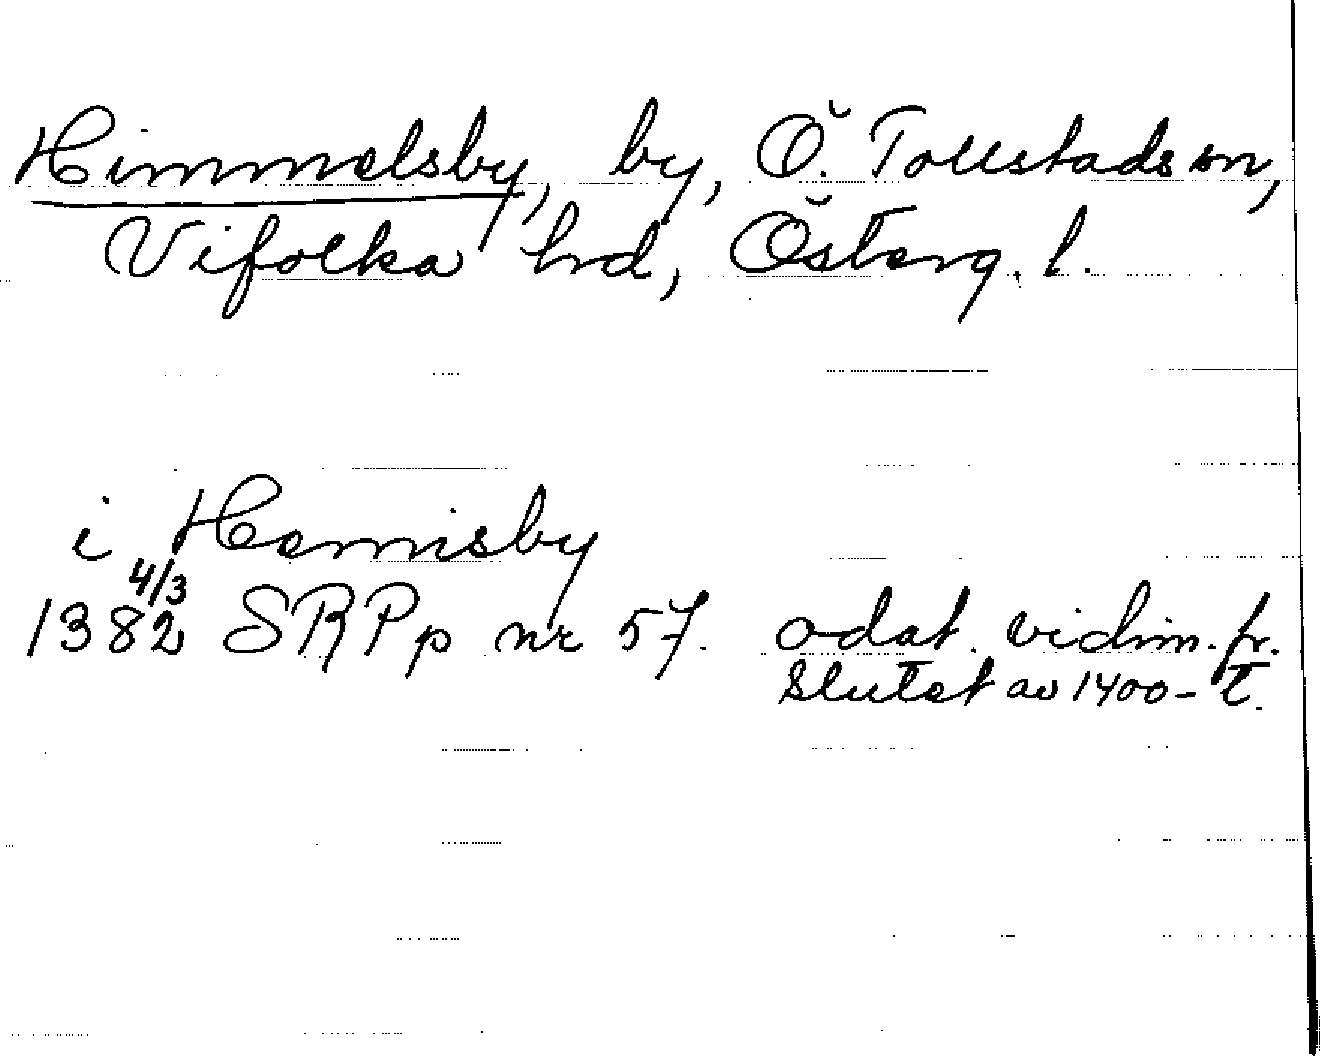 Himmelsby, by, Ö. Tollstads sn,
Vifolka hrd, Österg. l.
i Hemisby
4/3
1382 SRPp nr 57. odat. vidim. fr.
slutet av 1400-t.